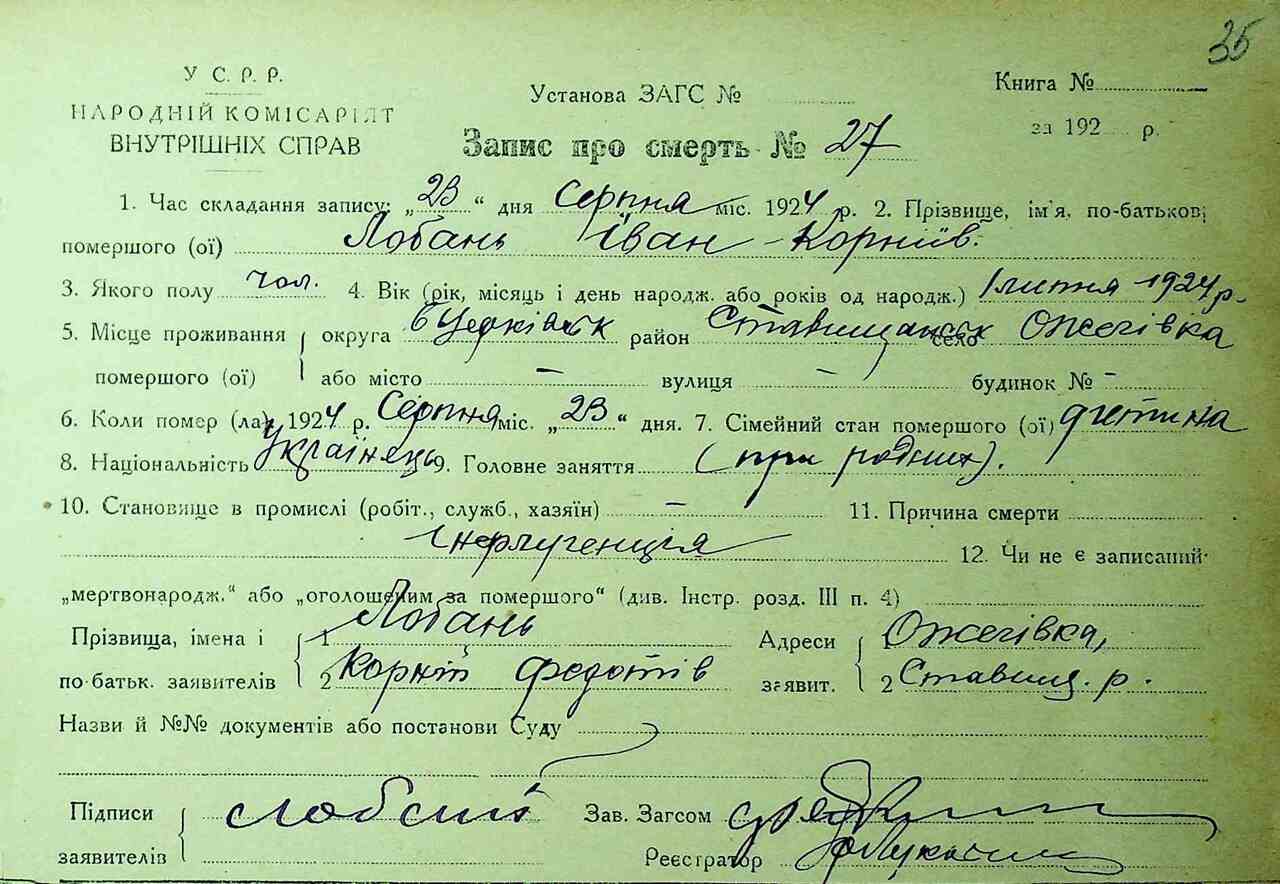 35
У С. Р. Р.
НАРОДНІЙ КОМІСАРІЯТ
ВНУТРІШНІХ СПРАВ
Установа ЗАГС №
Книга №
за 192 р.
Запис про смерть № 27
1. Час складання запису: „23“ дня Серпня міс. 1924 р. 2. Прізвище, ім'я, по-батькові
помершого (ої) Лобань Іван Корніїв.
3. Якого полу чол. 4. Вік (рік, місяць і день народж. або років од народж.) 1 липня 1924 р.
5. Місце проживання округа БЦерківськ район Ставищанськ село Ожегівка
помершого (ої) або місто — вулиця — будинок № —
6. Коли помер (ла) 1924 р. Серпня міс. „23“ дня. 7. Сімейний стан помершого (ої) дитина
8. Національність Українець 9. Головне заняття (при родних).
10. Становище в промислі (робіт., служб., хазяїн) — 11. Причина смерти
12. Чи не є записаний
„мертвонародж.“ або „оголошеним за помершого“ (див. Інстр. розд. III п. 4)
Прізвища, імена і 1 Лобань Адреси 1 Ожегівка,
по-батьк. заявителів 2 Корній Федотів заявит. 2 Ставищ. р.
Назви й №№ документів або постанови Суду
Підписи Зав. Загсом
заявителів Реєстратор